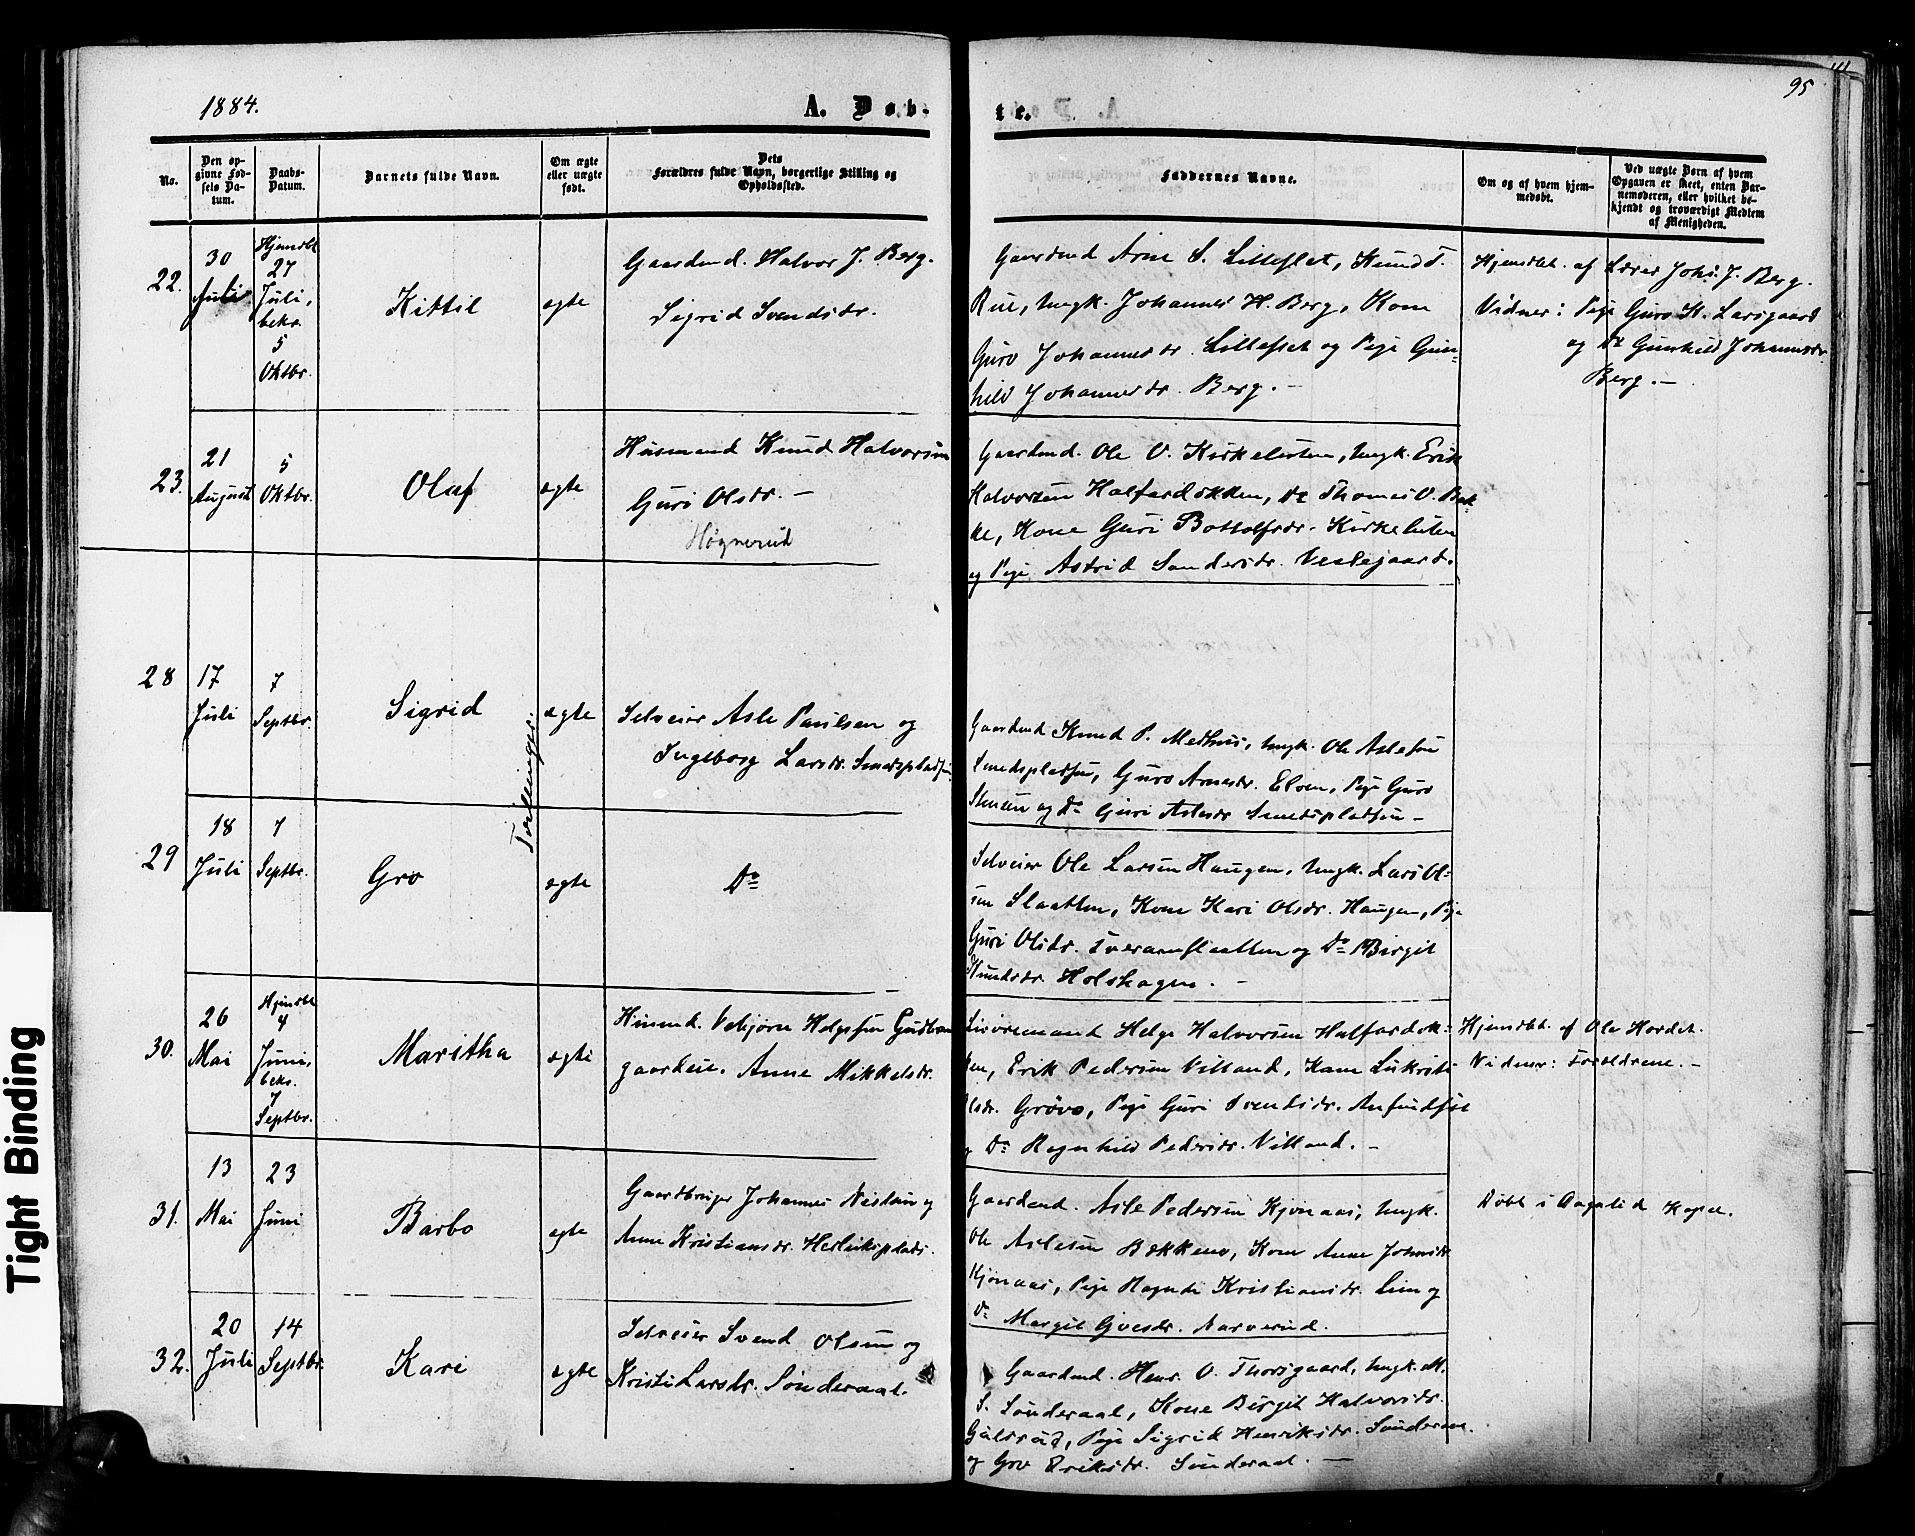 1884.
A. Døb-
tr.
95
No.
Den op-
givne Fød-
sels Da-
tum.
Daabs-
Datum.
Barnets fulde Navn.
Om ægte
eller uægte
født.
Dets
Forældres fulde Navn, borgerlige Stilling og
Opholdssted.
Faddernes Navne.
Om og af hvem hjem-
medøbt.
Ved uægte Børn af hvem
Opgaven er skeet, enten Bar-
nemoderen, eller hvilket be-
kjendt og troværdigt Medlem
af Menigheden.
22.
30
Juli
Hjemdbt
27
Juli,
bekr.
5
Oktbr.
Kittil
ægte
Gaardmd. Halvor J. Berg.
Sigrid Svendsdr.
Gaardmd Arne S. Lilleslet, Knud T.
Rue, Ungk. Johannes H. Berg, Kone
Guro Johannesdr. Lilleslet og Pige Gun-
hild Johannesdr. Berg. –
Hjemdbt. af Lærer Johs. J. Berg.
Vidner: Pige Guro K. Larsgaard
og Do Gunhild Johannesdr.
Berg. –
23.
21
August
5
Oktbr.
Olaf
ægte
Husmand Knud Halvorsen
Guri Olsdr. –
Høgnerud
Gaardmd. Ole O. Kirkeluten, Ungk. Erik
Halvorsen Halfardokken, Do Thomas O. Bak-
ke, Kone Guri Bottolfsdr. Kirkeluten
og Pige Astrid Sandersdr. Veslegaard.
28
17
Juli
7
Septbr.
Sigrid
Tvillinger.
ægte
Selveier Asle Paulsen og
Ingeborg Larsdr. Smedspladsen
Gaardmd Knud P. Medhus, Ungk. Ole Aslesen
Smedspladsen, Guro Arnesdr. Elven, Pige Guro
og Do Guri Aslesdr Smedspladsen –
29
18
Juli
7
Septbr.
Gro
ægte
Do
Selveier Ole Larsen Haugen, Ungk. Lars Ol-
sen Slaatten, Kone Kari Olsdr. Haugen, Pige
Guri Olsdr. Tveramslaatten og Do Birgit
Knudsdr. Holshagen. –
30.
26
Mai
Hjemdbt
4
Juni,
bekr.
7
Septbr.
Maritha
ægte
Husmd. Vebjørn Helgesen Gudbrans
gaardeie. Anne Mikkelsdr.
Livøremand Helge Halvorsen Halfardok-
ken, Erik Pedersen Villand, Kone Lukrits
Olsdr. Grøvo, Pige Guri Svendsdr. Anfindset
og Do Ragnhild Pedersdr. Villand. –
Hjemdbt. af Ole Hordet.
Vidner: Forældrene. –
31.
13
Mai
23
Juni
Barbo
ægte
Gaardbruger Johannes Nielsen og
Anne Kristiansdr. Herleiksplads.
Gaardmd. Asle Pedersen Kjønaas, Ungk.
Ole Aslesen Bækkene, Kone Anne Johnsdr.
Kjønaas, Pige Ragndi Kristiansdr. Lien og
Do Margit Goesdr. Aarverud.
Døbt i Aagslid Kapel.
32.
20
Juli
14
Septbr.
Kari
ægte
Selveier Svend Olsen og
Kristi Larsdr. Sønderaal.
Gaardmd. Henr. O. Thorsgaard, Ungk. M.
S. Sønderaal, Kone Birgit Halvorsdr.
Pige Sigrid Henriksdr. Sønderaal
og Gro Eriksdr. Sønderaal. –
Tight Binding